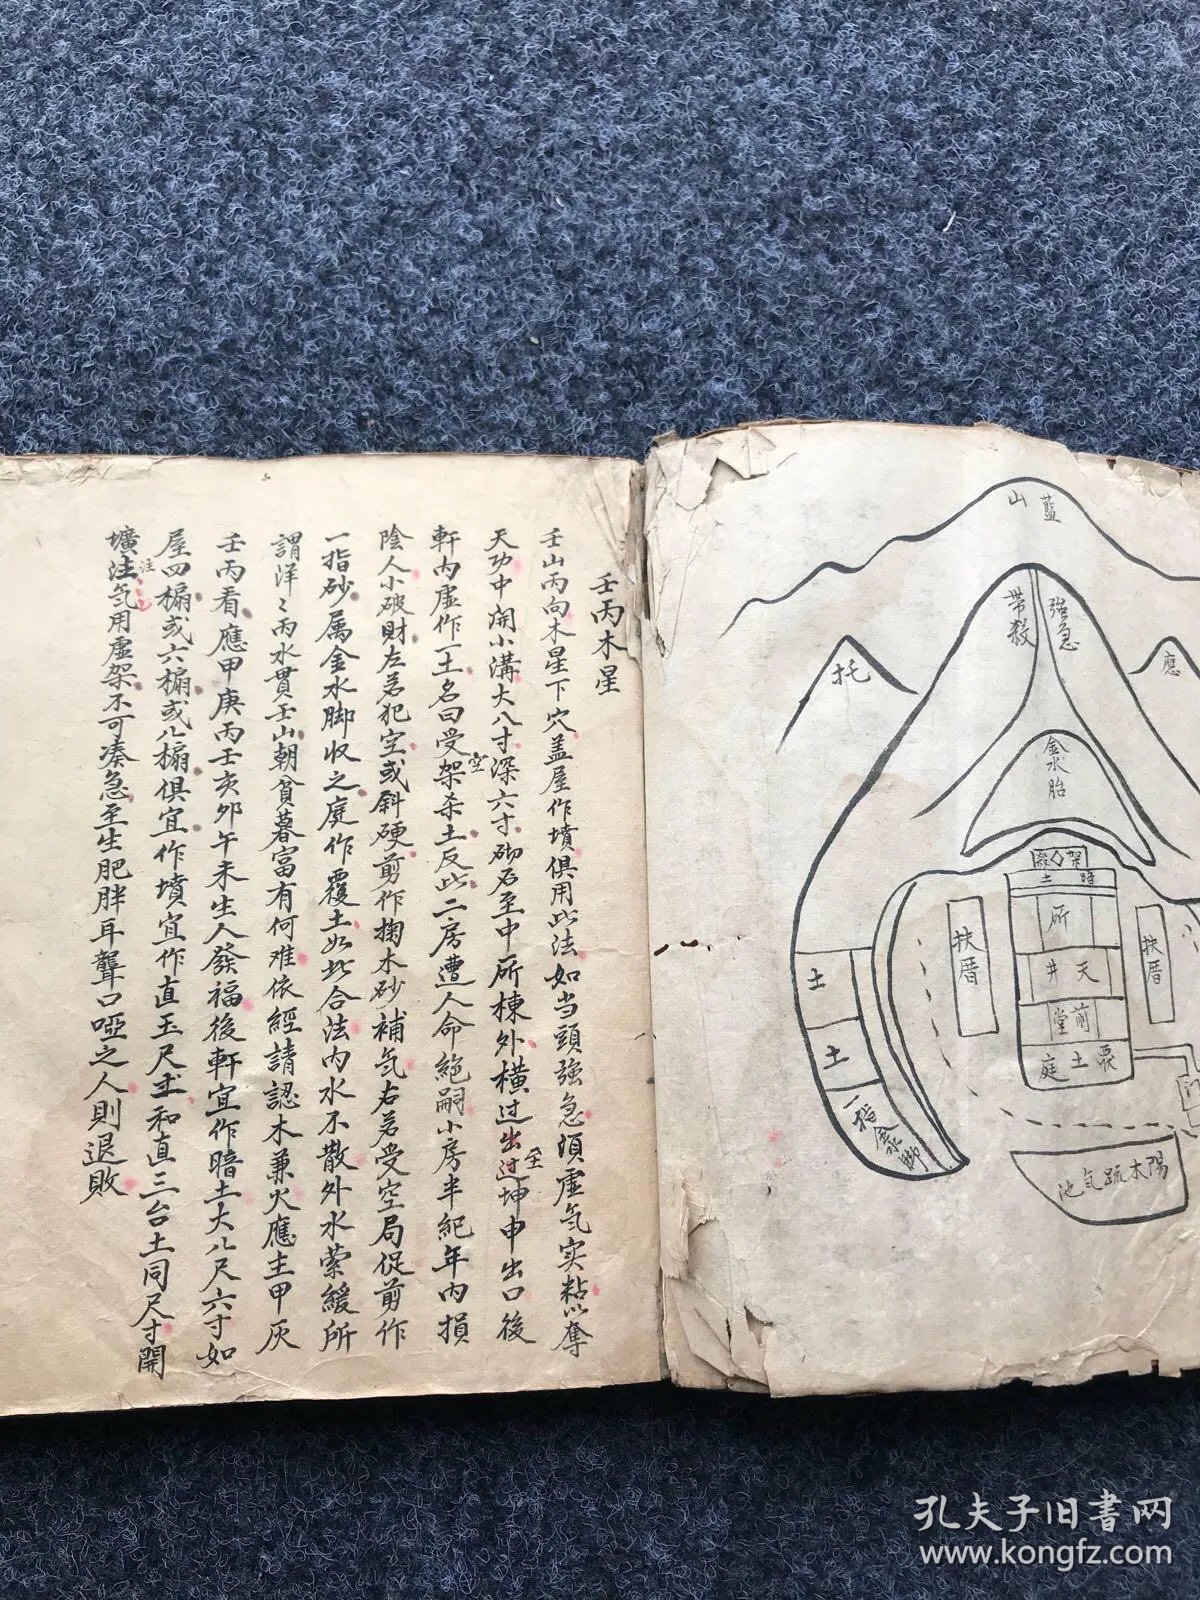 壬丙木星
壬山丙向木星下穴盖屋作墳俱用此法如当頭強急須虛氣实粘以奪
天功中開小溝大八寸深六寸砌石至中所棟外橫过出过坤申出口後
至
軒内虛作一土名曰受架杀土反此二房遭人命絕嗣小房半紀年内損
空
陰人小破財左若犯空或斜硬剪作掬木砂補氣右若受空局促剪作
一指砂属金水脚收之庭作覆土如此合法内水不散外水縈緩所
謂洋〻丙水貫壬山朝貧暮富有何难依經請認木兼火應主甲灰
壬丙看應甲庚丙壬亥卯午未生人發福後軒宜作暗土大八尺六寸如
屋四榀或六榀或八榀俱宜作墳宜作直玉尺土和直三台土同尺寸開
壙注氣用虛架不可凑急至生肥胖耳聾口啞之人則退敗
注
藍山
帶殺
強急
托
應
金水胎
架
暗土
所
天井
前堂
土庭
扶厝
扶厝
土
土
一指金水脚
門
陽木疏气池
孔夫子旧書网
www.kongfz.com